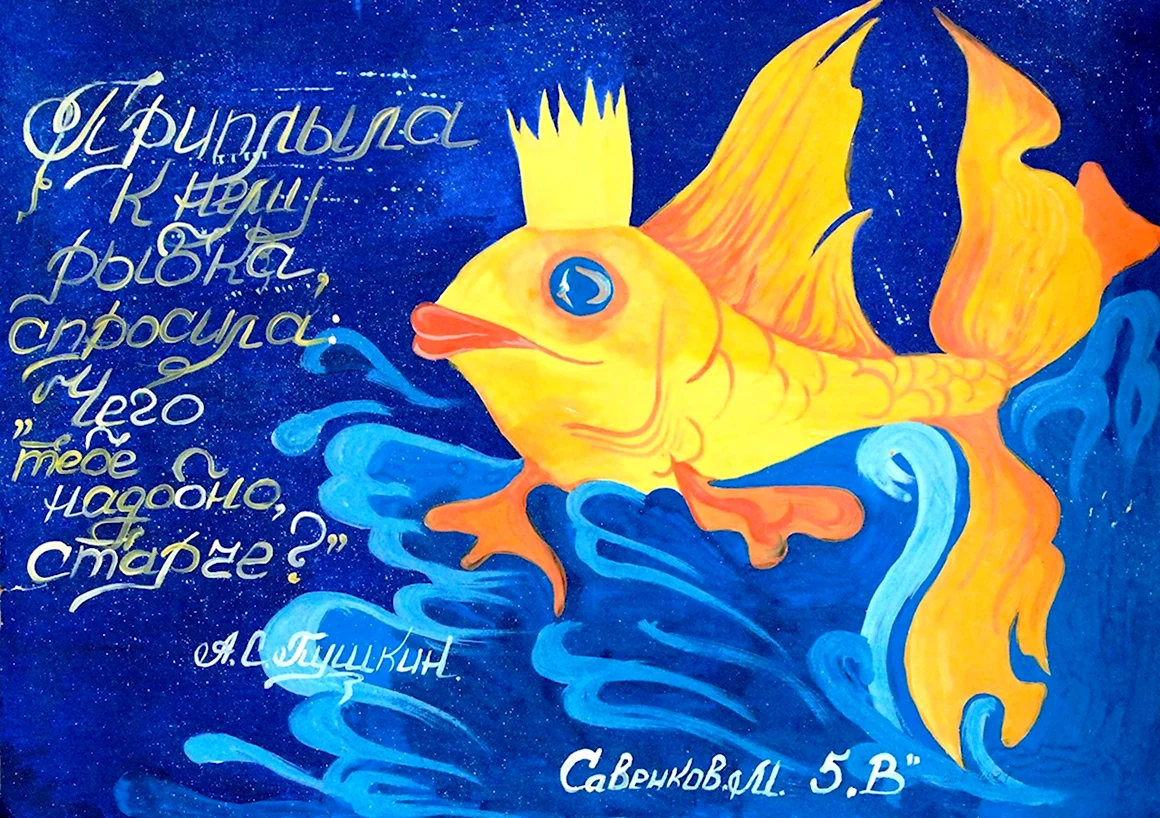 Приплыла
к нему
рыбка,
спросила:
Чего
„тебе
надобно,
старче?”
А.С.Пушкин.
Савенков.М. 5.В"